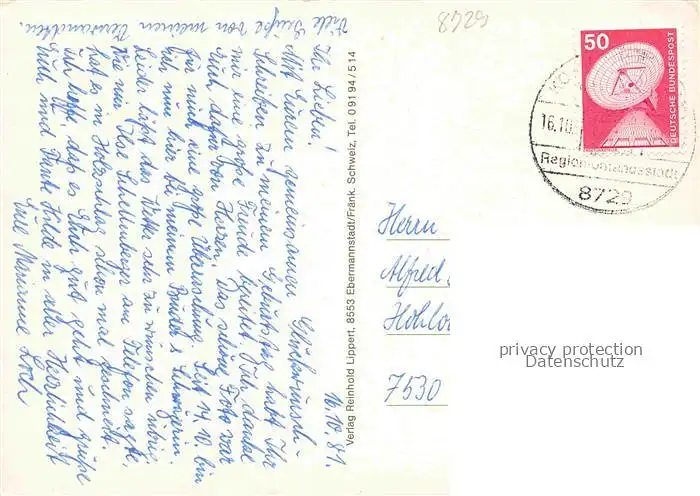 Viele Grüße von meinen Verwandten.
16.10.81.
Ihr Lieben!
Mit Euren gemeinsamen Glückwunsch-
Schreiben zu meinem Geburtstag habt Ihr
mir eine große Freude bereitet. Ich danke
Euch dafür von Herzen. Das schöne Foto war
für mich eine große Überraschung. Seit 14.10. bin
ich nun hier bei meinem Bruder u. Schwägerin.
Leider läßt das Wetter sehr zu wünschen übrig.
Wie mir Thea Schellenberger am Telefon sagte,
hat es in Holzschlag schon mal geschneit.
Ich hoffe, daß es Euch gut geht und grüße
Euch und Tante Hilde in aller Herzlichkeit
Eure Marianne Loch
Verlag Reinhold Lippert, 8553 Ebermannstadt/Fränk. Schweiz, Tel. 09194/514
8729
50
DEUTSCHE BUNDESPOST
16.10.
Regiomontanusstadt
8729
Herrn
Alfred
Hohlo
7530
privacy protection
Datenschutz